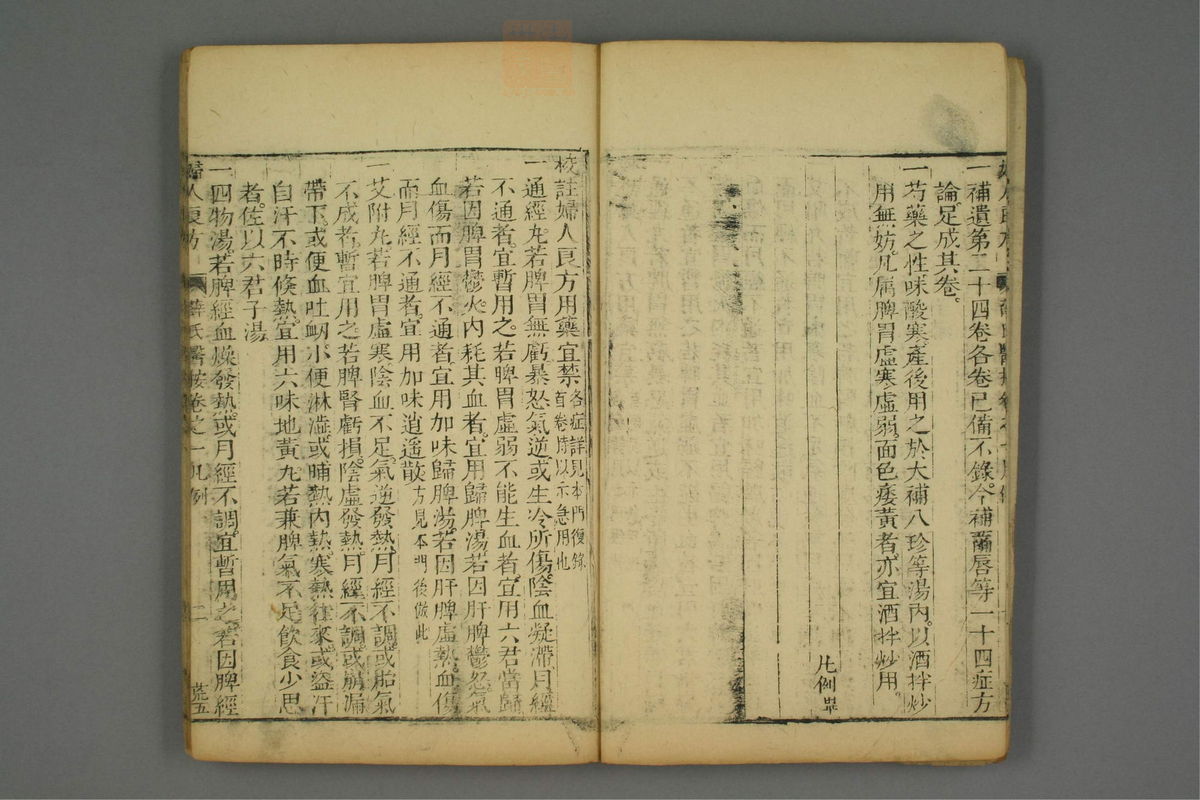 一補遺第二十四卷各卷已備不錄今補繭唇等一十四症方
論足成其卷
一芍藥之性味酸寒產後用之於大補八珍等湯內以酒拌炒
用無妨凡属脾胃虛寒虛弱面色痿黃者亦宜酒拌炒用
凡例畢
校註婦人良方用藥宜禁
各症詳見本門復錄
首卷庶以示急用也
一通經丸若脾胃無虧暴怒氣逆或生冷所傷陰血凝滯月經
不通者宜暫用之若脾胃虛弱不能生血者宜用六君當歸
若因脾胃鬱火內耗其血者宜用歸脾湯若因肝脾鬱怒氣
血傷而月經不通者宜用加味歸脾湯若因肝脾虛熱血傷
而月經不通者宜用加味逍遥散方見本門後倣此
一艾附丸若脾胃虛寒陰血不足氣逆發熱月經不調或胎氣
不成者暫宜用之若脾腎虧損陰虛發熱月經不調或崩漏
帶下或便血吐衂小便淋澁或晡熱內熱寒熱往來或盜汗
自汗不時倐熱宜用六味地黃丸若兼脾氣不足飲食少思
者佐以六君子湯
一四物湯若脾經血燥發熱或月經不調宜暫用之若因脾經
婦人良方 薛氏醫按卷之一凡例 二 荒五